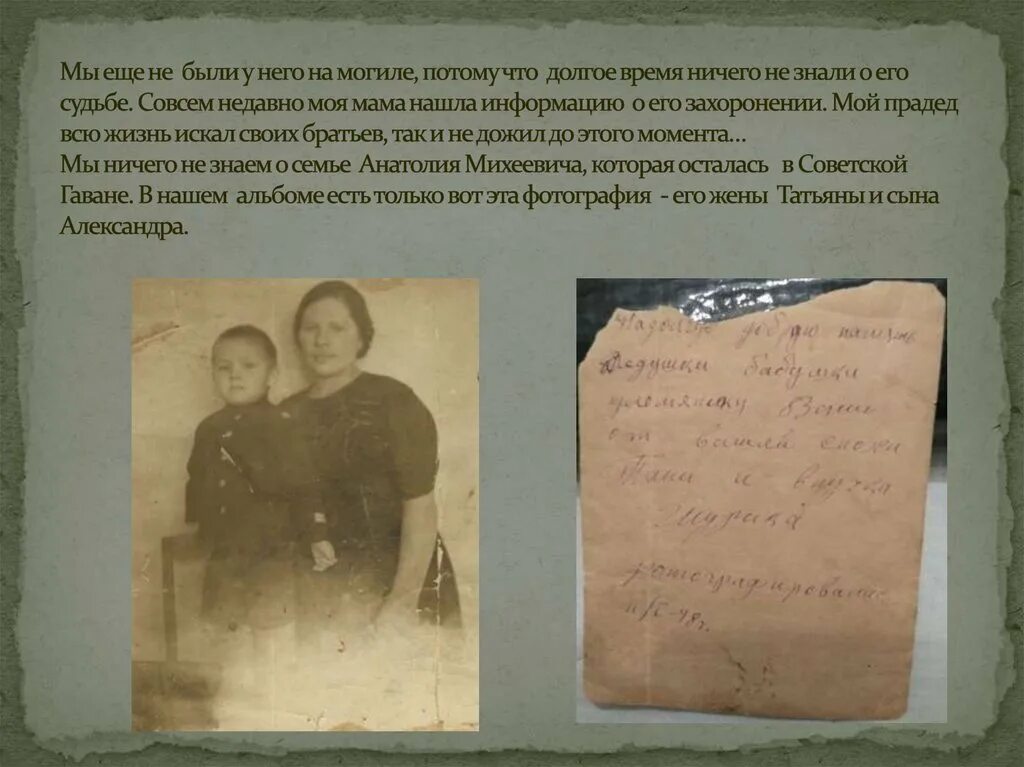 Мы еще не были у него на могиле, потому что долгое время ничего не знали о его
судьбе. Совсем недавно моя мама нашла информацию о его захоронении. Мой прадед
всю жизнь искал своих братьев, так и не дожил до этого момента...
Мы ничего не знаем о семье Анатолия Михеевича, которая осталась в Советской
Гаване. В нашем альбоме есть только вот эта фотография - его жены Татьяны и сына
Александра.
На долгую добрую память
Дедушки бабушки
племяннику
от вашей снохи
Тани и внучка
Шурика
фотографировались